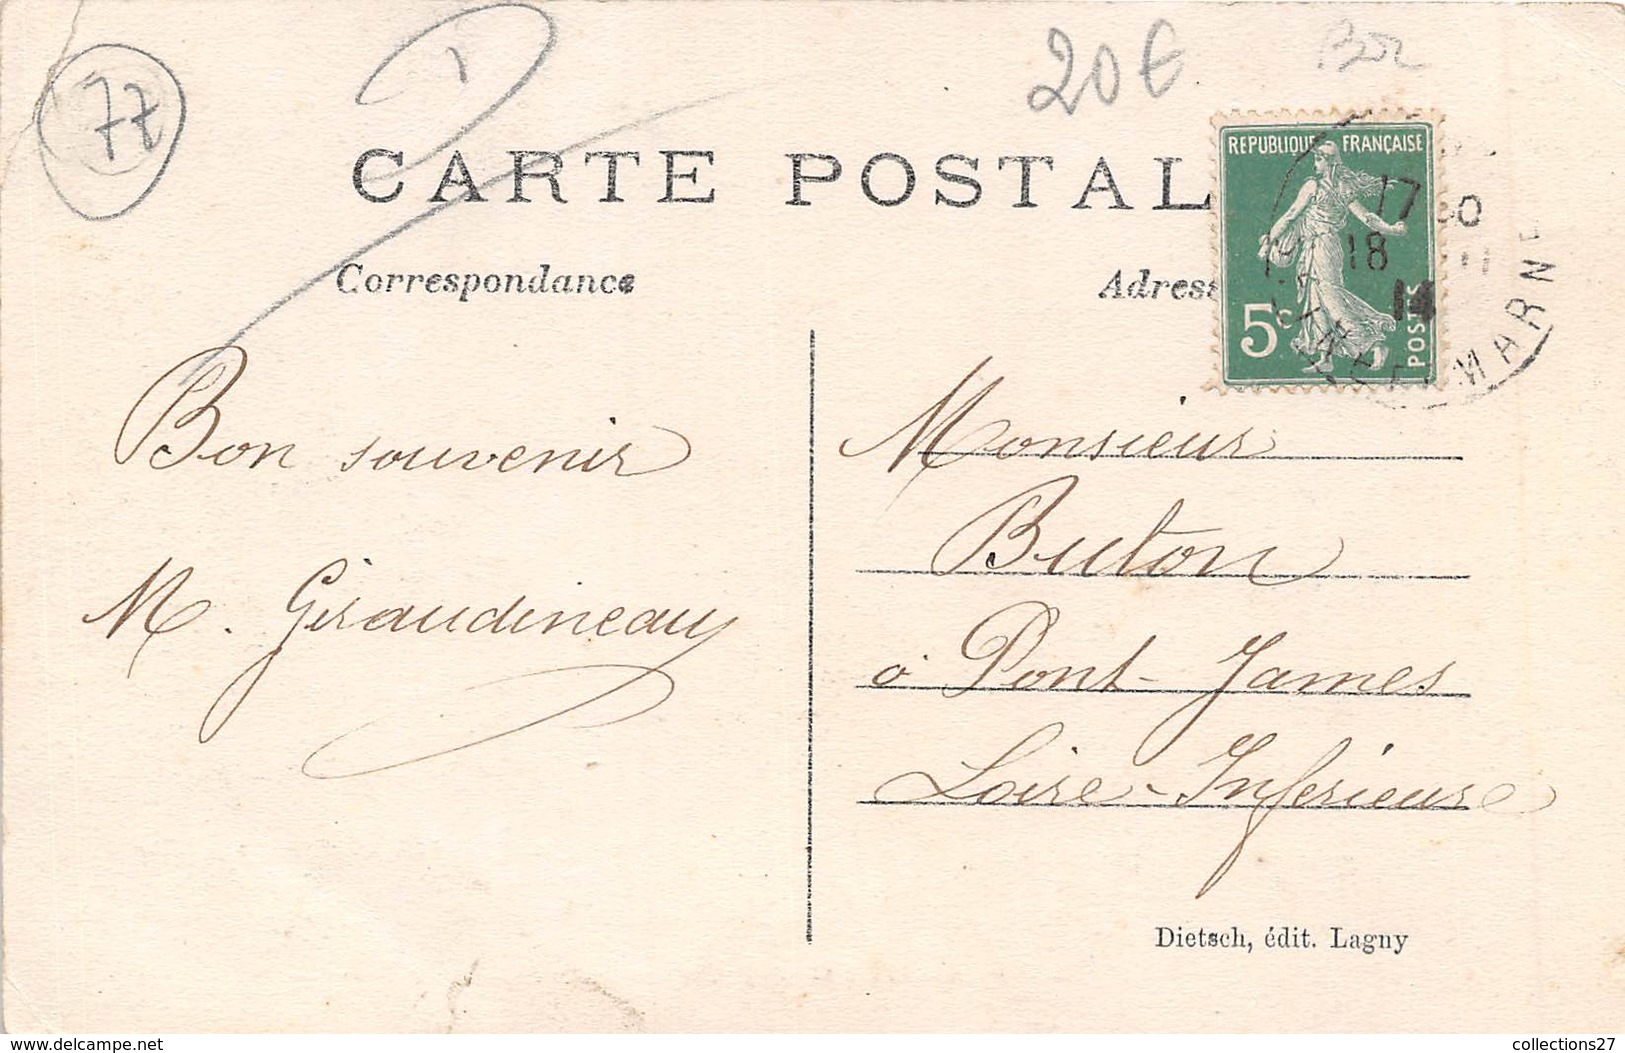 77
20€
CARTE POSTAL
Correspondance
Adress
REPUBLIQUE FRANÇAISE
5c
POSTES
17 30
18
14
MARNE
Bon souvenir
M. Giraudineau
Monsieur
Buton
à Pont-James
Loire-Inférieure
Dietsch, édit. Lagny
www.delcampe.net
collections27